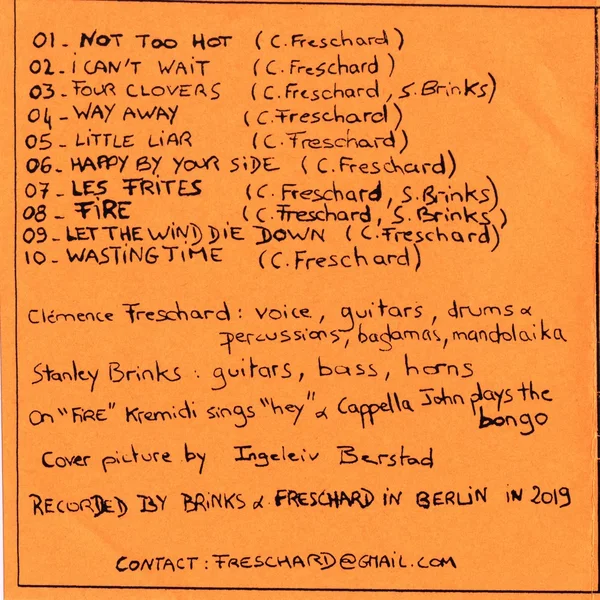 01 - NOT TOO HOT (C. Freschard)
02 - I CAN'T WAIT (C. Freschard)
03 - FOUR CLOVERS (C. Freschard, S. Brinks)
04 - WAY AWAY (C. Freschard)
05 - LITTLE LIAR (C. Freschard)
06 - HAPPY BY YOUR SIDE (C. Freschard)
07 - LES FRITES (C. Freschard, S. Brinks)
08 - FIRE (C. Freschard, S. Brinks)
09 - LET THE WIND DIE DOWN (C. Freschard)
10 - WASTING TIME (C. Freschard)
Clémence Freschard : voice, guitars, drums &
percussions, baglamas, mandolaika
Stanley Brinks : guitars, bass, horns
On "FIRE" Kremidi sings "hey" & Cappella John plays the
bongo
Cover picture by Ingeleiv Berstad
RECORDED BY BRINKS & FRESCHARD IN BERLIN IN 2019
CONTACT : FRESCHARD@GMAIL.COM